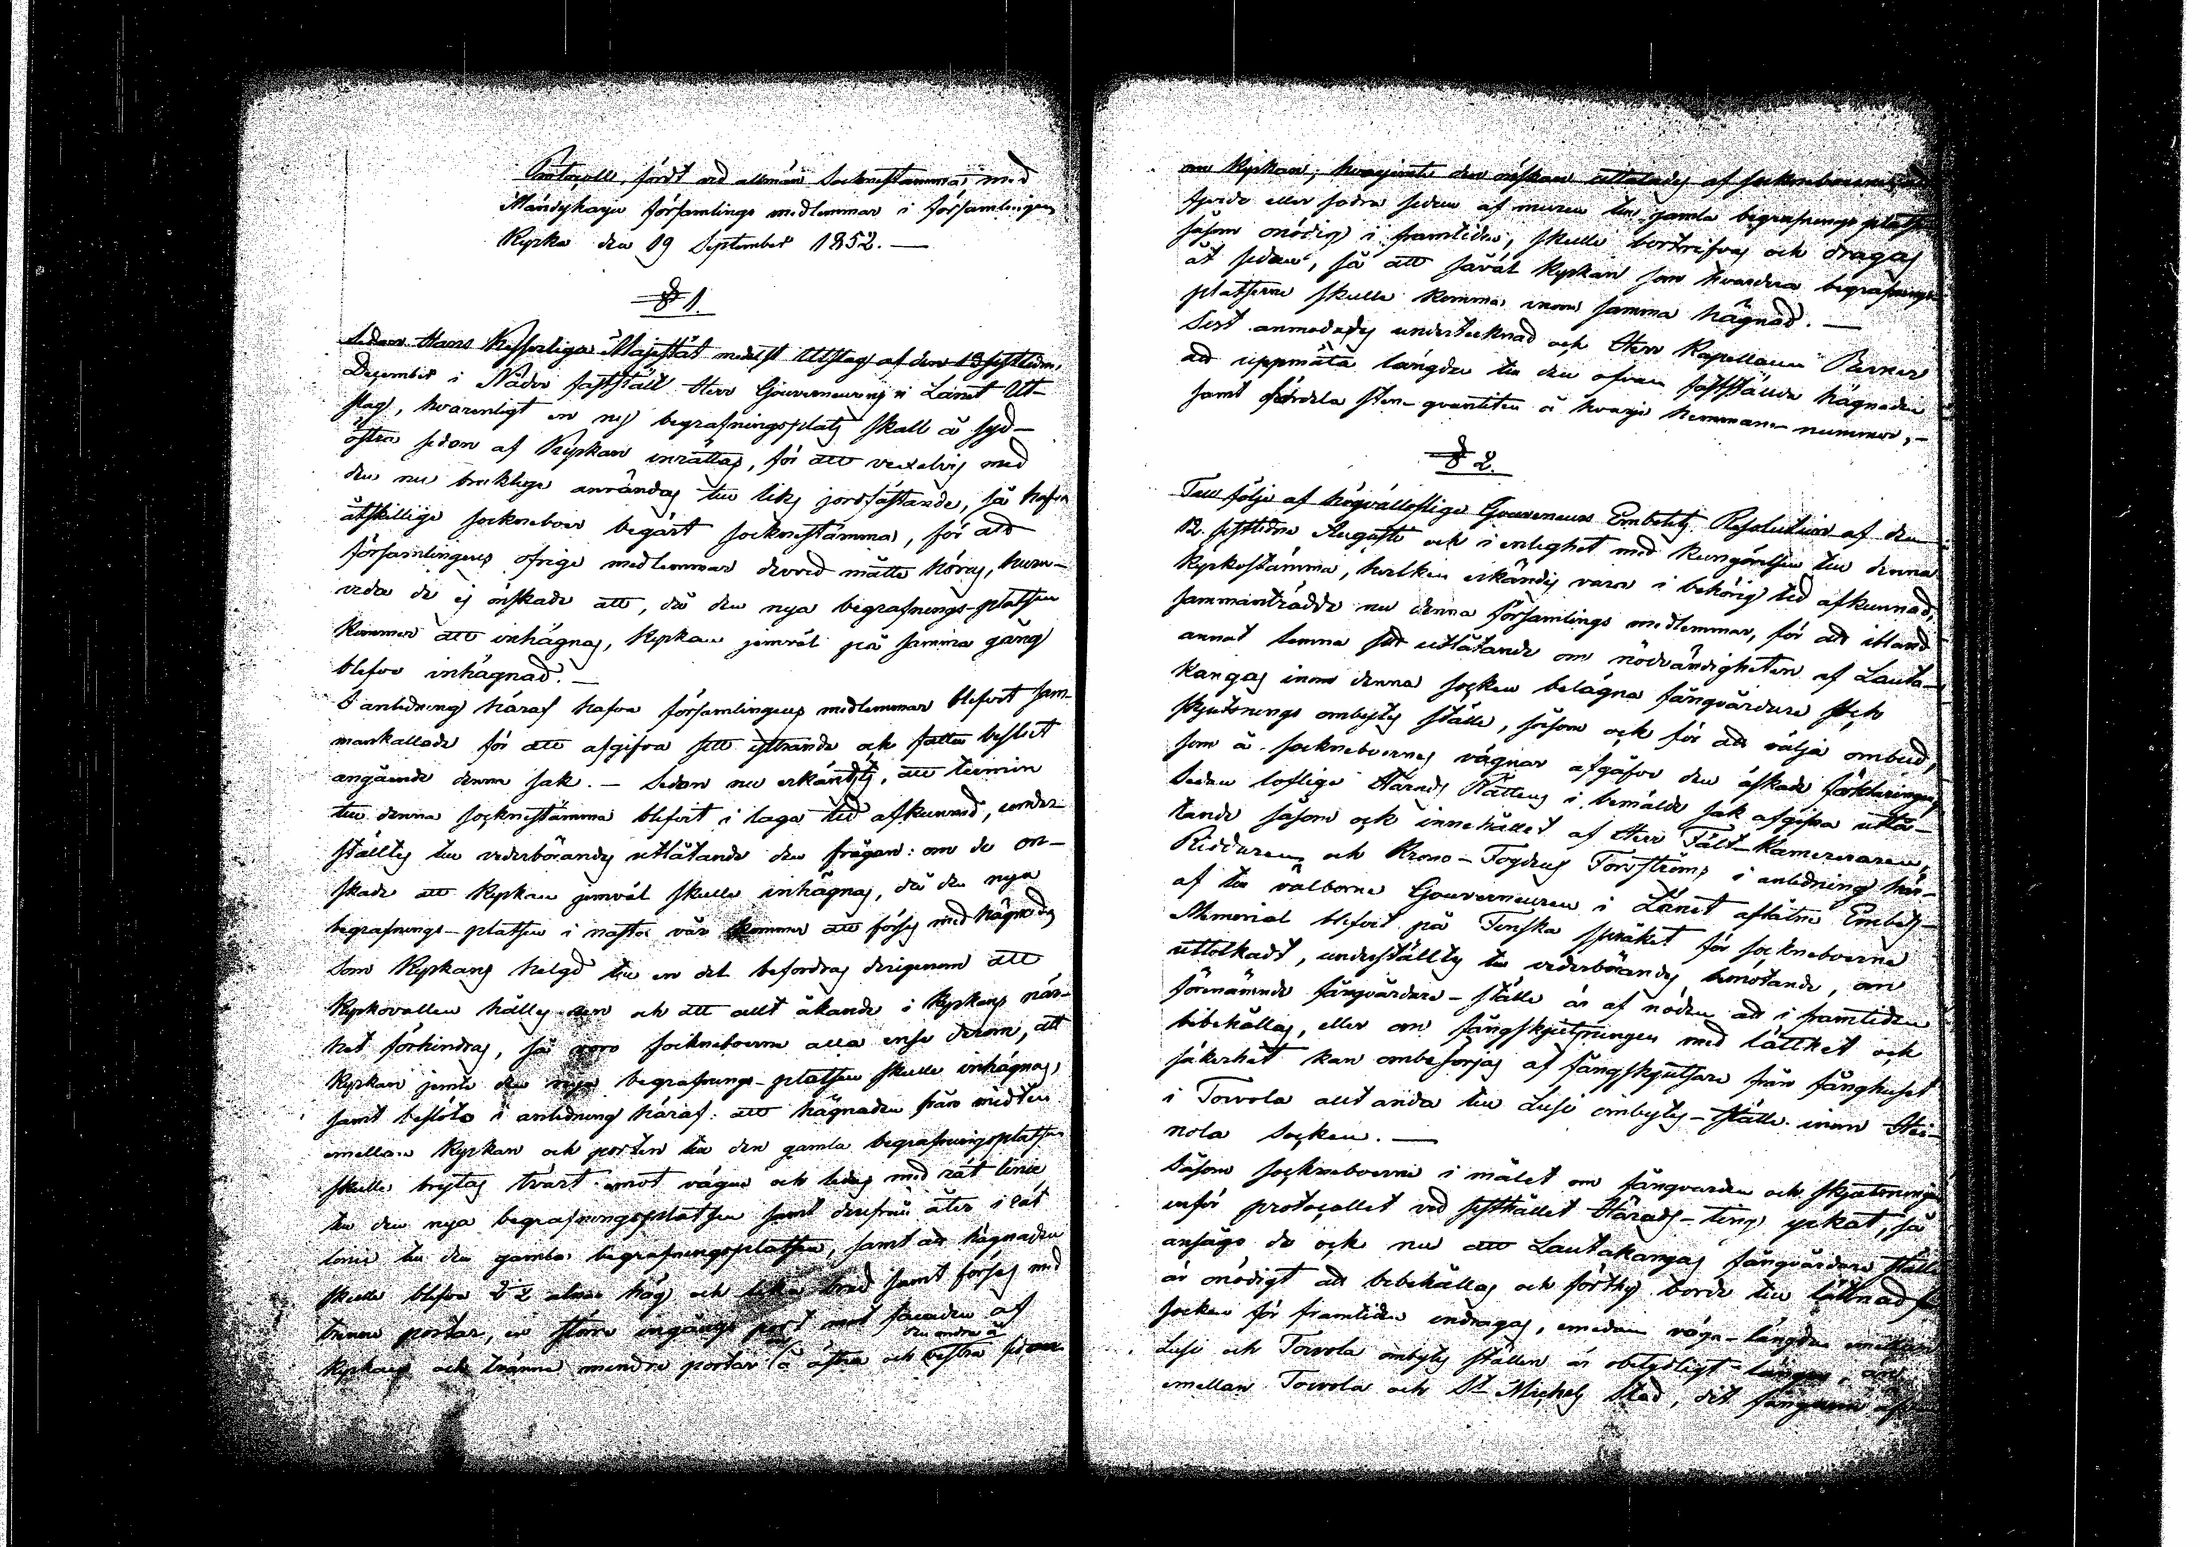 Protocoll, fördt vid allmän Sockenstämma, med
Mändyharju församlings medlemmar i församlingens
Kyrka den 19 September 1852. —
§ 1.
Sedan Hans Kejserliga Majestät medelst Utslag af den 18 sistledne
December i Nåder fastställt Herr Gouverneurens i Länet Ut-
slag, hvarenligt en ny begrafningsplats skall å syd-
östra sidan af Kyrkan inrättas, för att vexelvis med
den nu brukliga användas till liks jordfästande, så hafva
åtskillige sockneboer begärt sockenstämma, för att
församlingens öfrige medlemmar dervid måtte höras, huru-
vida de ej önskade att, då den nya begrafnings-platsen
kommer att inhägnas, kyrkan jemväl på samma gång
blefve inhägnad. —
I anledning häraf hafva församlingens medlemmar blefvit sam-
mankallade för att afgifva sitt yttrande och fatta beslut
angående denna sak. — Sedan nu erkändts, att termin
till denna sockenstämma blefvit i laga tid afkunnad, under-
ställtes till vederbörandes utlåtande den frågan: om de ön-
skade att Kyrkan jemväl skulle inhägnas, då den nya
begrafnings-platsen i nästa vår kommer att förses med hägnad
Som Kyrkans helgd till en del befordras derigenom att
Kyrkovallen hålles ren och att allt åkande i Kyrkans när-
het förhindras, så voro sockneboerne alla ense derom, att
Kyrkan jemte den nya begrafnings-platsen skulle inhägnas,
samt beslöto i anledning häraf: att hägnaden från midten
emellan Kyrkan och porten till den gamla begrafningsplatsen
skulle brytas tvärt emot vägen och ledas med rät linie
till den nya begrafningsplatsen samt derifrån åter i rät
linie till den gamla begrafningsplatsen, samt att hägnaden
skulle blifva 2½ alnar hög och lika bred samt förses med
trenne portar, en större ingångs port mot facaden af
Kyrkan och tvänne mindre portar å östra och den andra å vestra sidan
om Kyrkan; hvarjemte den önskan uttalades af sockneboerne,
sida eller södra sidan af muren till gamla begrafnings platsen
såsom onödig i framtiden, skulle bortrifvas och dragas
åt sidan, så att såväl Kyrkan som hvardera begrafnings
platserne skulle komma inom samma hägnad. —
Sist anmodades undertecknad och Herr Kapellanen
att uppmäta längden till den ofvan fastställda hägnaden
samt fördela sten-qvantiteten å hvarje hemmans-nummer. —
§ 2.
Till följe af högvällofliga Gouverneurs Embetets Resolution af den
12 sistledne Augusti och i enlighet med kungörelsen till denna
Kyrkostämma, hvilken erkändes vara i behörig tid afkunnad,
sammanträdde nu denna församlings medlemmar, för att ibland
annat lemna sitt utlåtande om nödvändigheten af Lauta-
kangas inom denna socken belägna fångvärdare och
skjutsnings ombytes ställe, såsom ock för att välja ombud,
som å sockneboernes vägnar afgåfve den äskade förklaringen,
Sedan loflige Härads Rättens i bemälde sak afgifna utlå-
tande såsom ock innehållet af Herr Fält-Kamereraren,
Riddaren och Krono-Fogden Forsströms i anledning här-
af till välborne Gouverneuren i Länet aflåtne Embets-
Memorial blefvit på Finska språket för sockneboerne
uttolkadt, underställtes till vederbörandes bemötande, om
förenämnde fångvärdare-ställe är af nöden att i framtiden
bibehållas, eller om fångskjutsningen med lätthet och
säkerhet kan ombesörjas af fångskjutsare från fånghuset
i Toivola allt ända till Lusi ombytes-ställe inom Hei-
nola Socken. —
Såsom sockneboerne i målet om fångvården och skjutsningen
inför protocollet vid sisthållet Härads-ting yrkat, så
ansågo de ock nu att Lautakangas fångvärdare ställe
är onödigt att bibehållas och förthy borde till lättnad för
socken för framtiden indragas, emedan väga-längden emellan
Lusi och Toivola ombytes ställen är obetydligt längre, än
emellan Toivola och St Michels Stad, dit fångarne